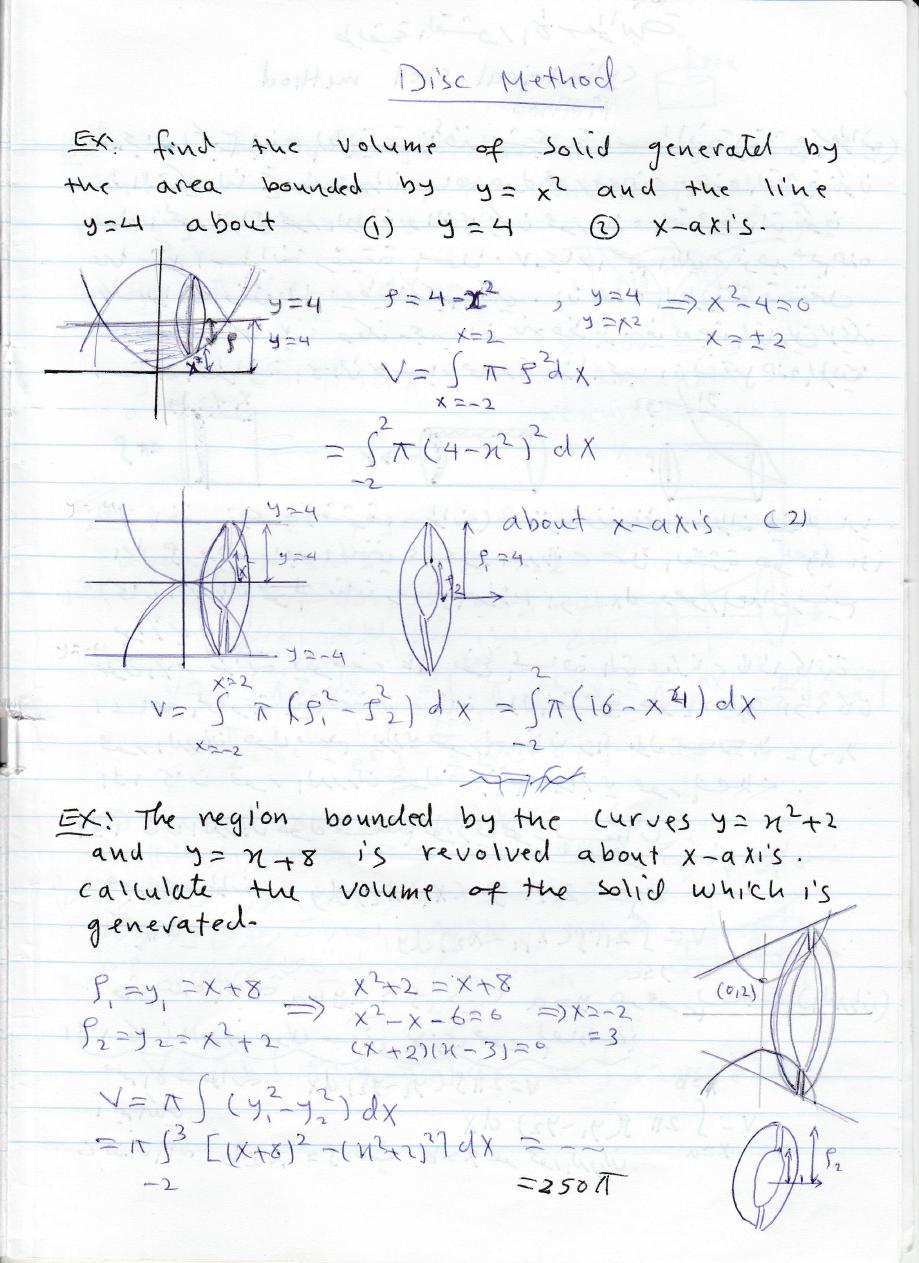 Disc Method
EX: find the volume of solid generated by
the area bounded by y = x² and the line
y=4 about (1) y = 4 (2) x-axis.
y=4
ρ = 4-x² , y=4 ⇒ x²-4=0
y=4
ρ
x²
y=x²
x = ±2
V = ∫_{x=-2}^{x=2} π ρ² dx
= ∫_{-2}^{2} π (4-x²)² dx
y=4
about x-axis (2)
y=4
x²
ρ₁=4
y=-4
V = ∫_{x=-2}^{x=2} π (ρ₁² - ρ₂²) dx = ∫_{-2}^{2} π (16 - x⁴) dx
EX: The region bounded by the curves y = x²+2
and y = x+8 is revolved about x-axis.
calculate the volume of the solid which is
generated.
(0,2)
ρ₁ = y₁ = x+8 ⇒ x²+2 = x+8
ρ₂ = y₂ = x²+2
x²-x-6=0 ⇒ x=-2
(x+2)(x-3)=0 =3
V = π ∫ (y₁² - y₂²) dx
= π ∫_{-2}^{3} [(x+8)² - (x²+2)²] dx = ---
= 250π
ρ₂